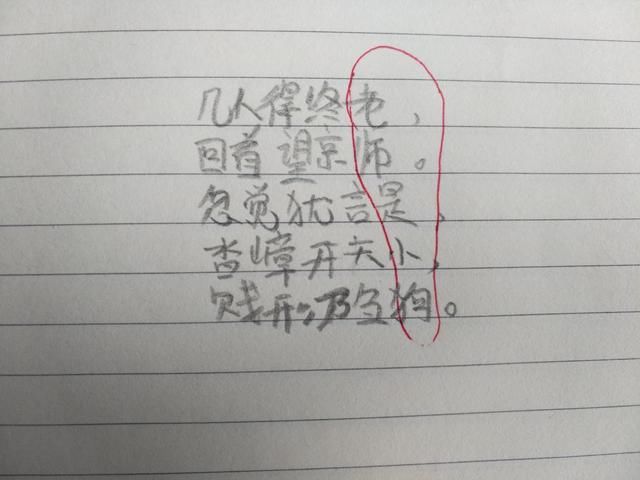 几人得终老，
回首望京师。
忽觉犹言是，
杳嶂开天小，
贱形乃刍狗。